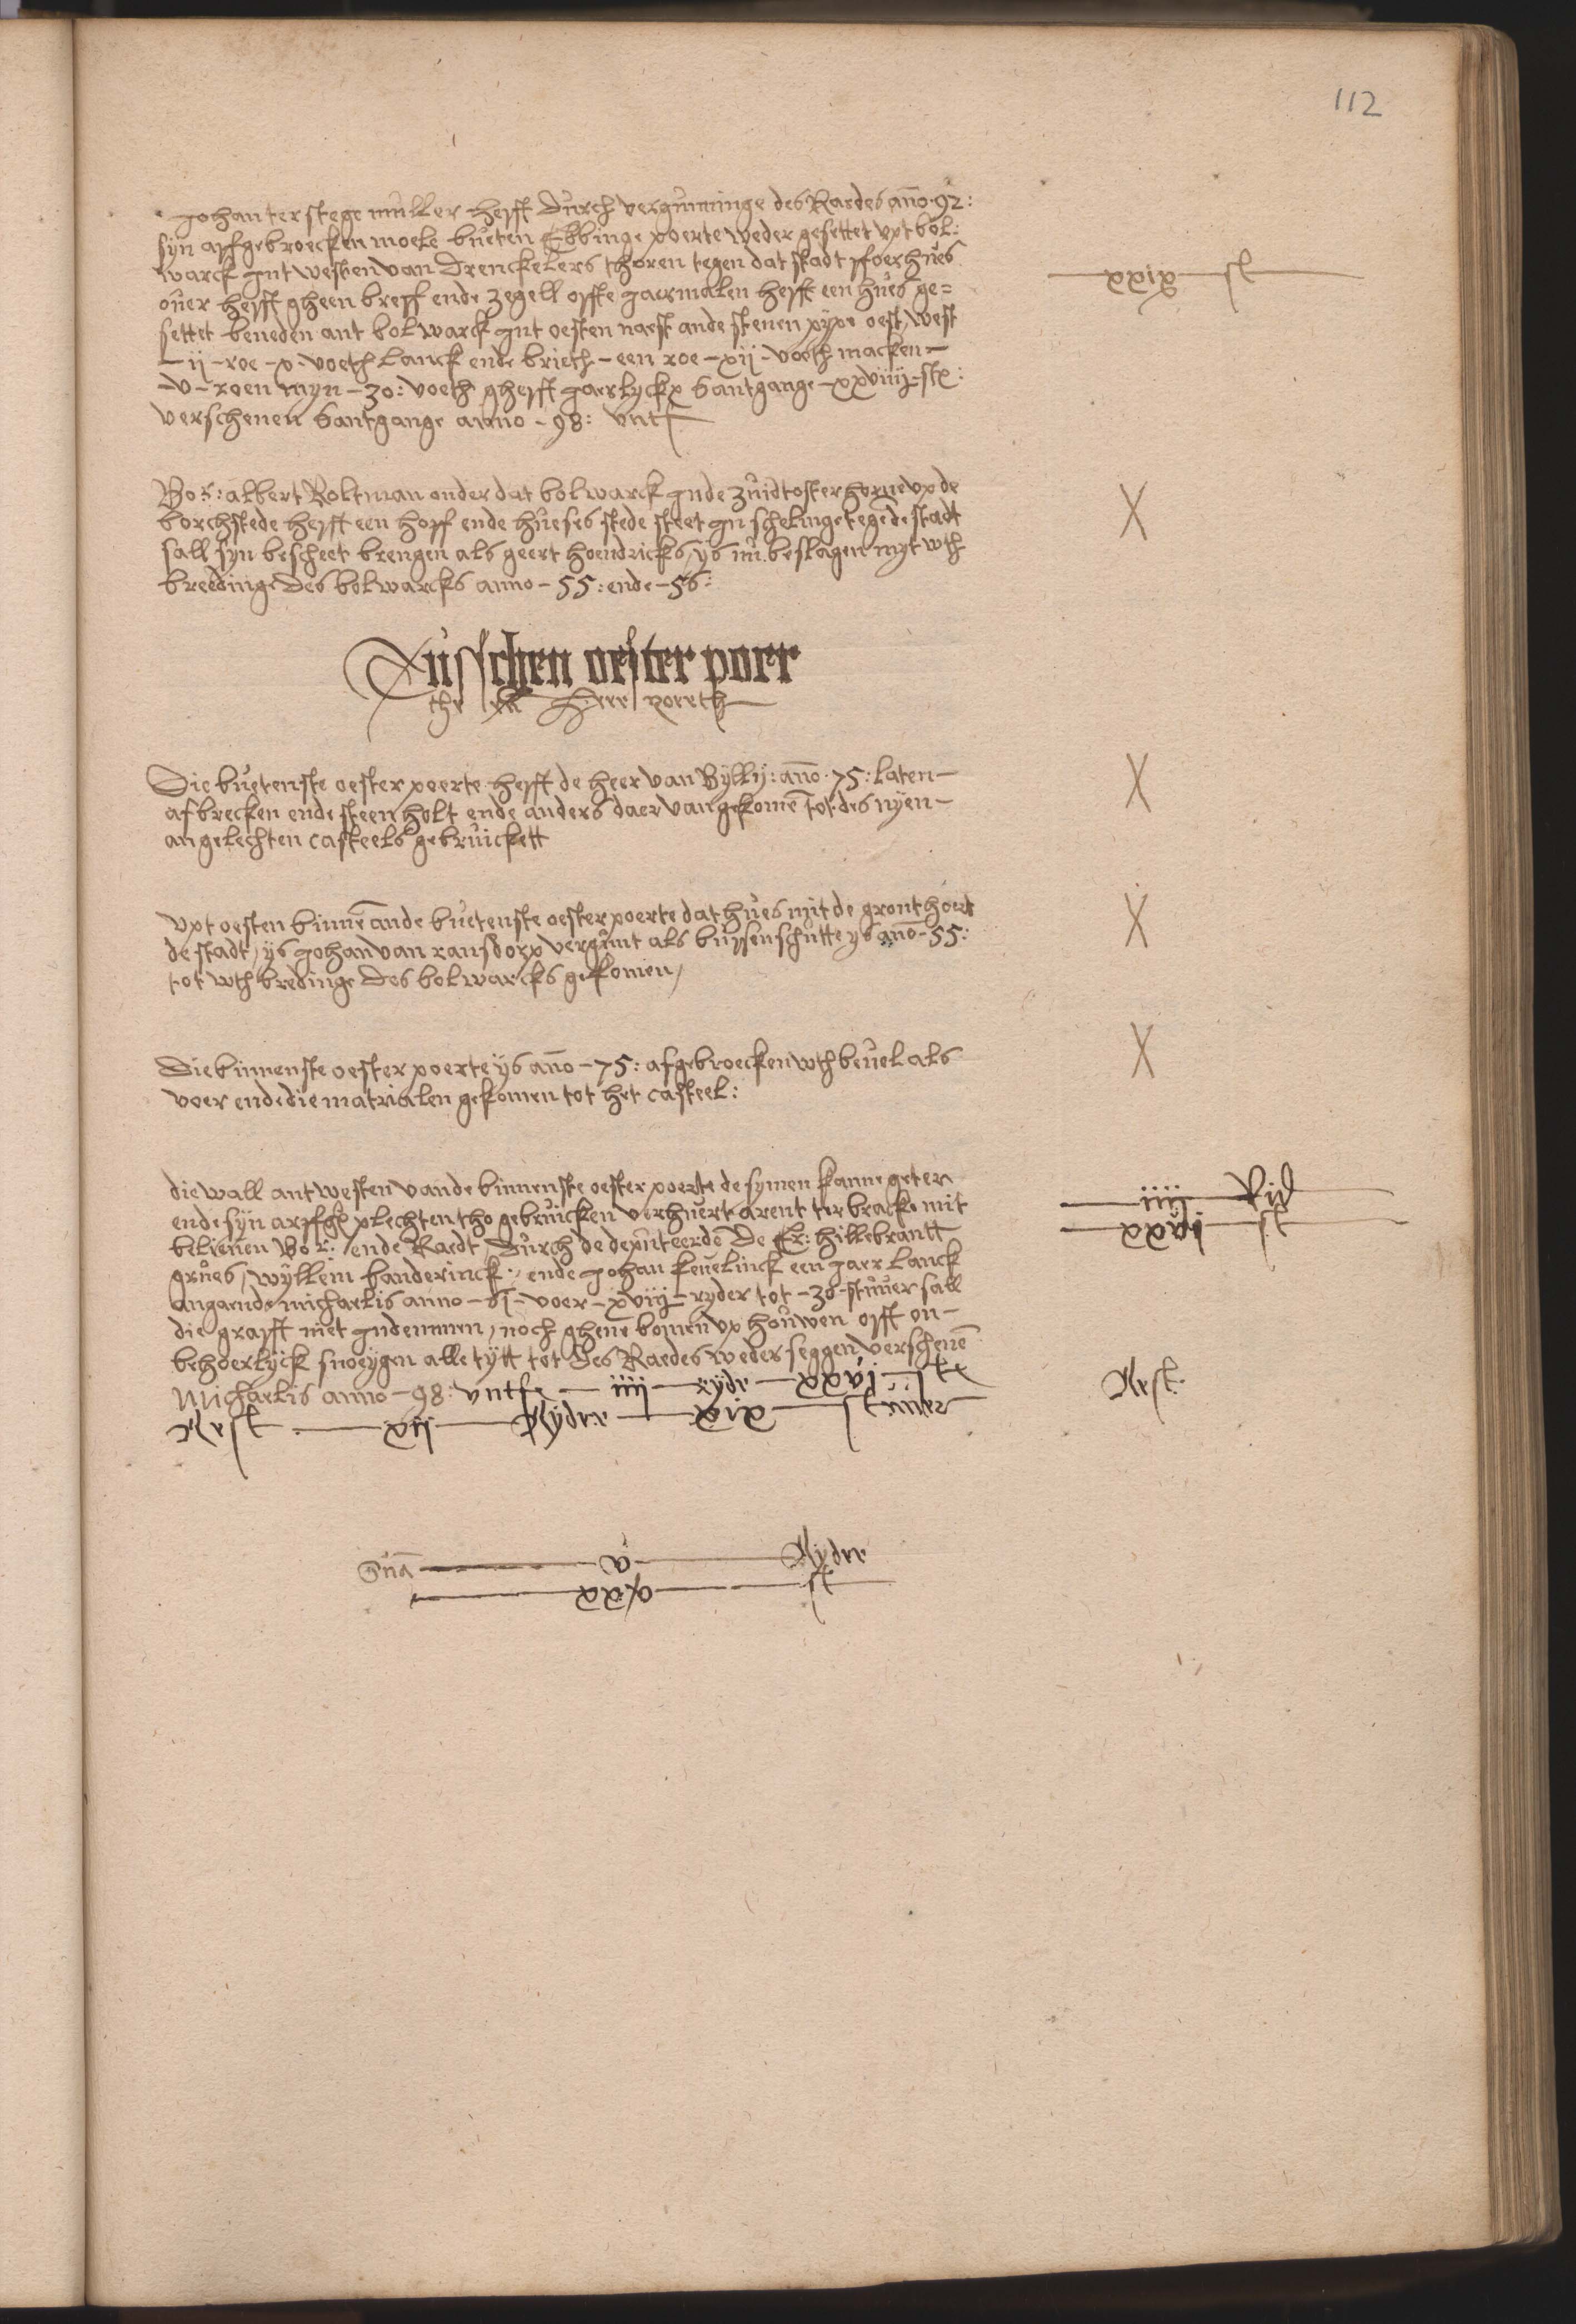 112
Johan ter stege muller hefft durch vergunninge des Raedes año 92:
syn affgebroecken moele bueten Ebbinge poerte weder gesettet vpt bol:
warck int westen van Drenckelers thoren tegen dat stadt
over hefft gheen breff ende zegell offte jaermalen hefft een hues ge=
settet beneden ant bolwarck int oesten naest ande stenen pype oest, west
– ij – roe – x voeth lanck ende brieth – een roe – xij – voeth macken –
– v – roen myn – 30: voeth ghefft jaerlyckx Santgange – xxviiij – stx:
verschenen Santgange anno – 98: vntf
xxix st
Bor: albert Roltman onder dat bolwarck inde zuidtoster horne vp de
borchstede hefft een hoff ende hueses stede steet in schelinge tege de stadt
sall syn bescheet brengen als geert hoendricks, ys nu beslagen myt wth
breedinge des bolwarcks anno – 55: ende – 56:
X
Tusschen oester poer
the Here poerth
Die buetenste oester poerte hefft de heer van Bylly: año 75: laten –
afbrecken ende steen holt ende anders daer van gekomē tot des nyen –
angelechten casteels gebruickett
X
vpt oesten binnē ande buetenste oester poerte dat hues mit de gront hoert
de stadt, ys Johan van ransdorp vergunt als bussenschutte ys año – 55:
tot wthbredinge des bolwarcks gekomen,
X
Die binnenste oester poerte ys año – 75: afgebroecken wth bevel als
voer ende die matrialen gekomen tot het casteel:
X
die wall ant westen vande binnenste oester poerte de symen kannegeter
ende syn plechten tho gebruicken verhuert arent ter bracke mit
belieuen Bor: ende Raedt, durch de deputeerdē De Er: hillebrantt
grues, wyllem banderinck: ende Johan keuelinck een jaer lanck
angaende michaelis anno – 61 – voer – xviij – ryder tot – 30 – stuver sall
die grafft niet indemmen, noch ghene bomen vp houwen offt on –
behoerlyck snoeygen alle tytt tot des Raedes weder seggen verschenē
Michaelis anno – 98: vntfe – iiij – ryde – xxvi – ste
Rest – xij – Rydere – xix – stuver
iiij Rid
xxvi st
Rest
v Rydere
xxv st